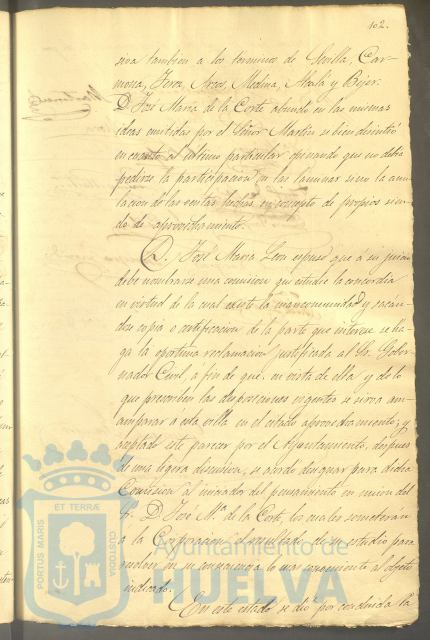 102.
siva tambien a los terminos de Sevilla, Car-
mona, Jerez, Arcos, Medina, Alcalá y Bejer.
D. José Maria de la Corte abundó en las mismas
ideas emitidas por el Señor Martin si bien disintió
en cuanto al último particular opinando que no debia
pedirse la participacion en las laminas sino la anu-
lacion de las ventas hechas en concepto de propios sien-
do de aprovechamiento.
D. José Maria Leon espuso que á su juicio
debe nombrarse una comision que estudie la concordia
en virtud de la cual existe la mancomunidad y sacán-
dose copia o certificacion de la parte que interese se ha-
ga la oportuna reclamacion justificada al Sr. Gober-
nador Civil a fin de que en vista de ella y de lo
que prescriben las disposiciones vigentes se sirva am-
amparar a esta villa en el estado aprovechamiento, y
aceptado este parecer por el Ayuntamiento, despues
de una ligera discusion, se acordó designar para dicha
Comision al iniciador del pensamiento en union del
Sr. D. José Mª. de la Corte, los cuales someterán
a la Corporacion el resultado de su estudio para
resolver en su consecuencia lo mas conveniente al objeto
indicado.
En este estado se dió por concluida la
PORTUS MARIS ET TERRÆ CUSTODIA
Ayuntamiento de
HUELVA